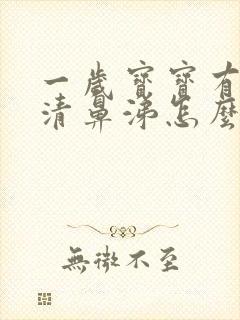 一歲寶寶有
清鼻涕怎麼
無微不至